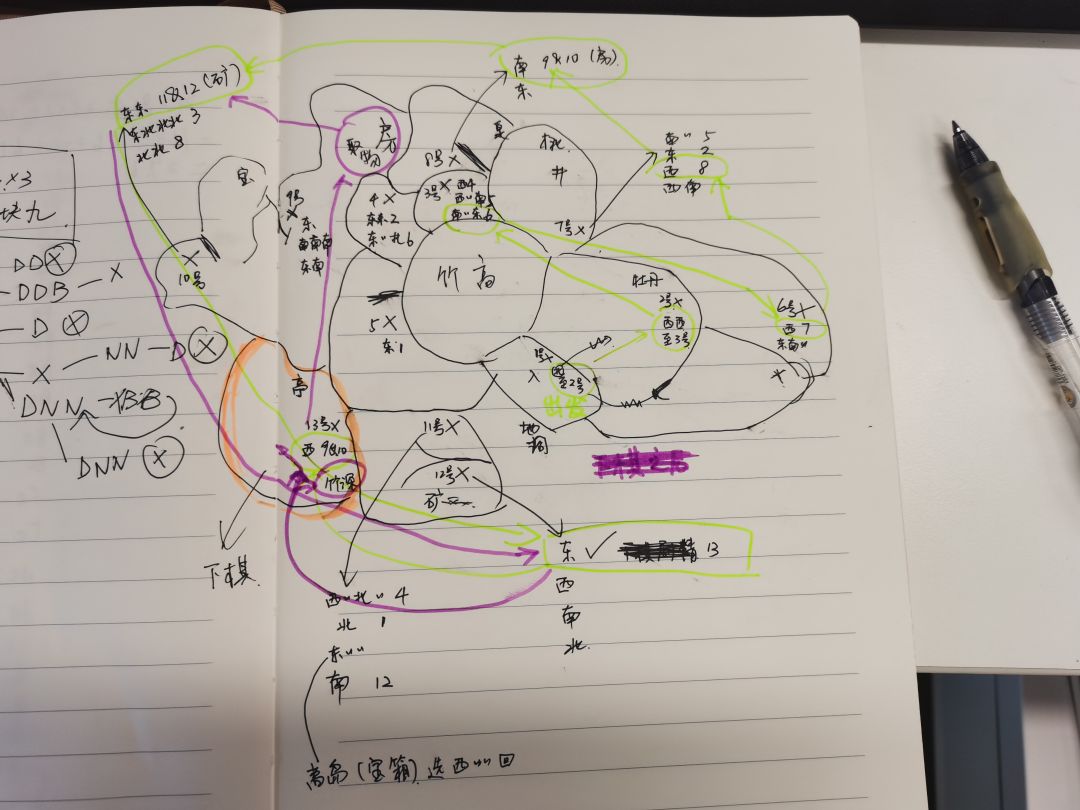 南 9&10 (高)
东
东东 11&12 (矿)
东北北北 3
北北 8
宝
10号
9号
X
东
南南南
东南
聚物
4 X
东东 2
东"北 6
8号 X
3号 X 西4
西"南5
南"东6
井
7号 X
南" 5
东 2
西 8
西南
竹高
5 X
东1
牡丹
2号X
西西
至3号
6号X
西 7
东南"
1号X
至2号
入
出发
地洞
亭
13号X
西 9&10
竹深
下棋
11号X
12号X
矿
东 ✓ 13
西
南
北
西"北" 4
北 1
东"""
南 12
离岛(宝箱)选西"""回
X3
块九
DD X
DDB — X
D X
X — NN — D X
DNN
DNN X